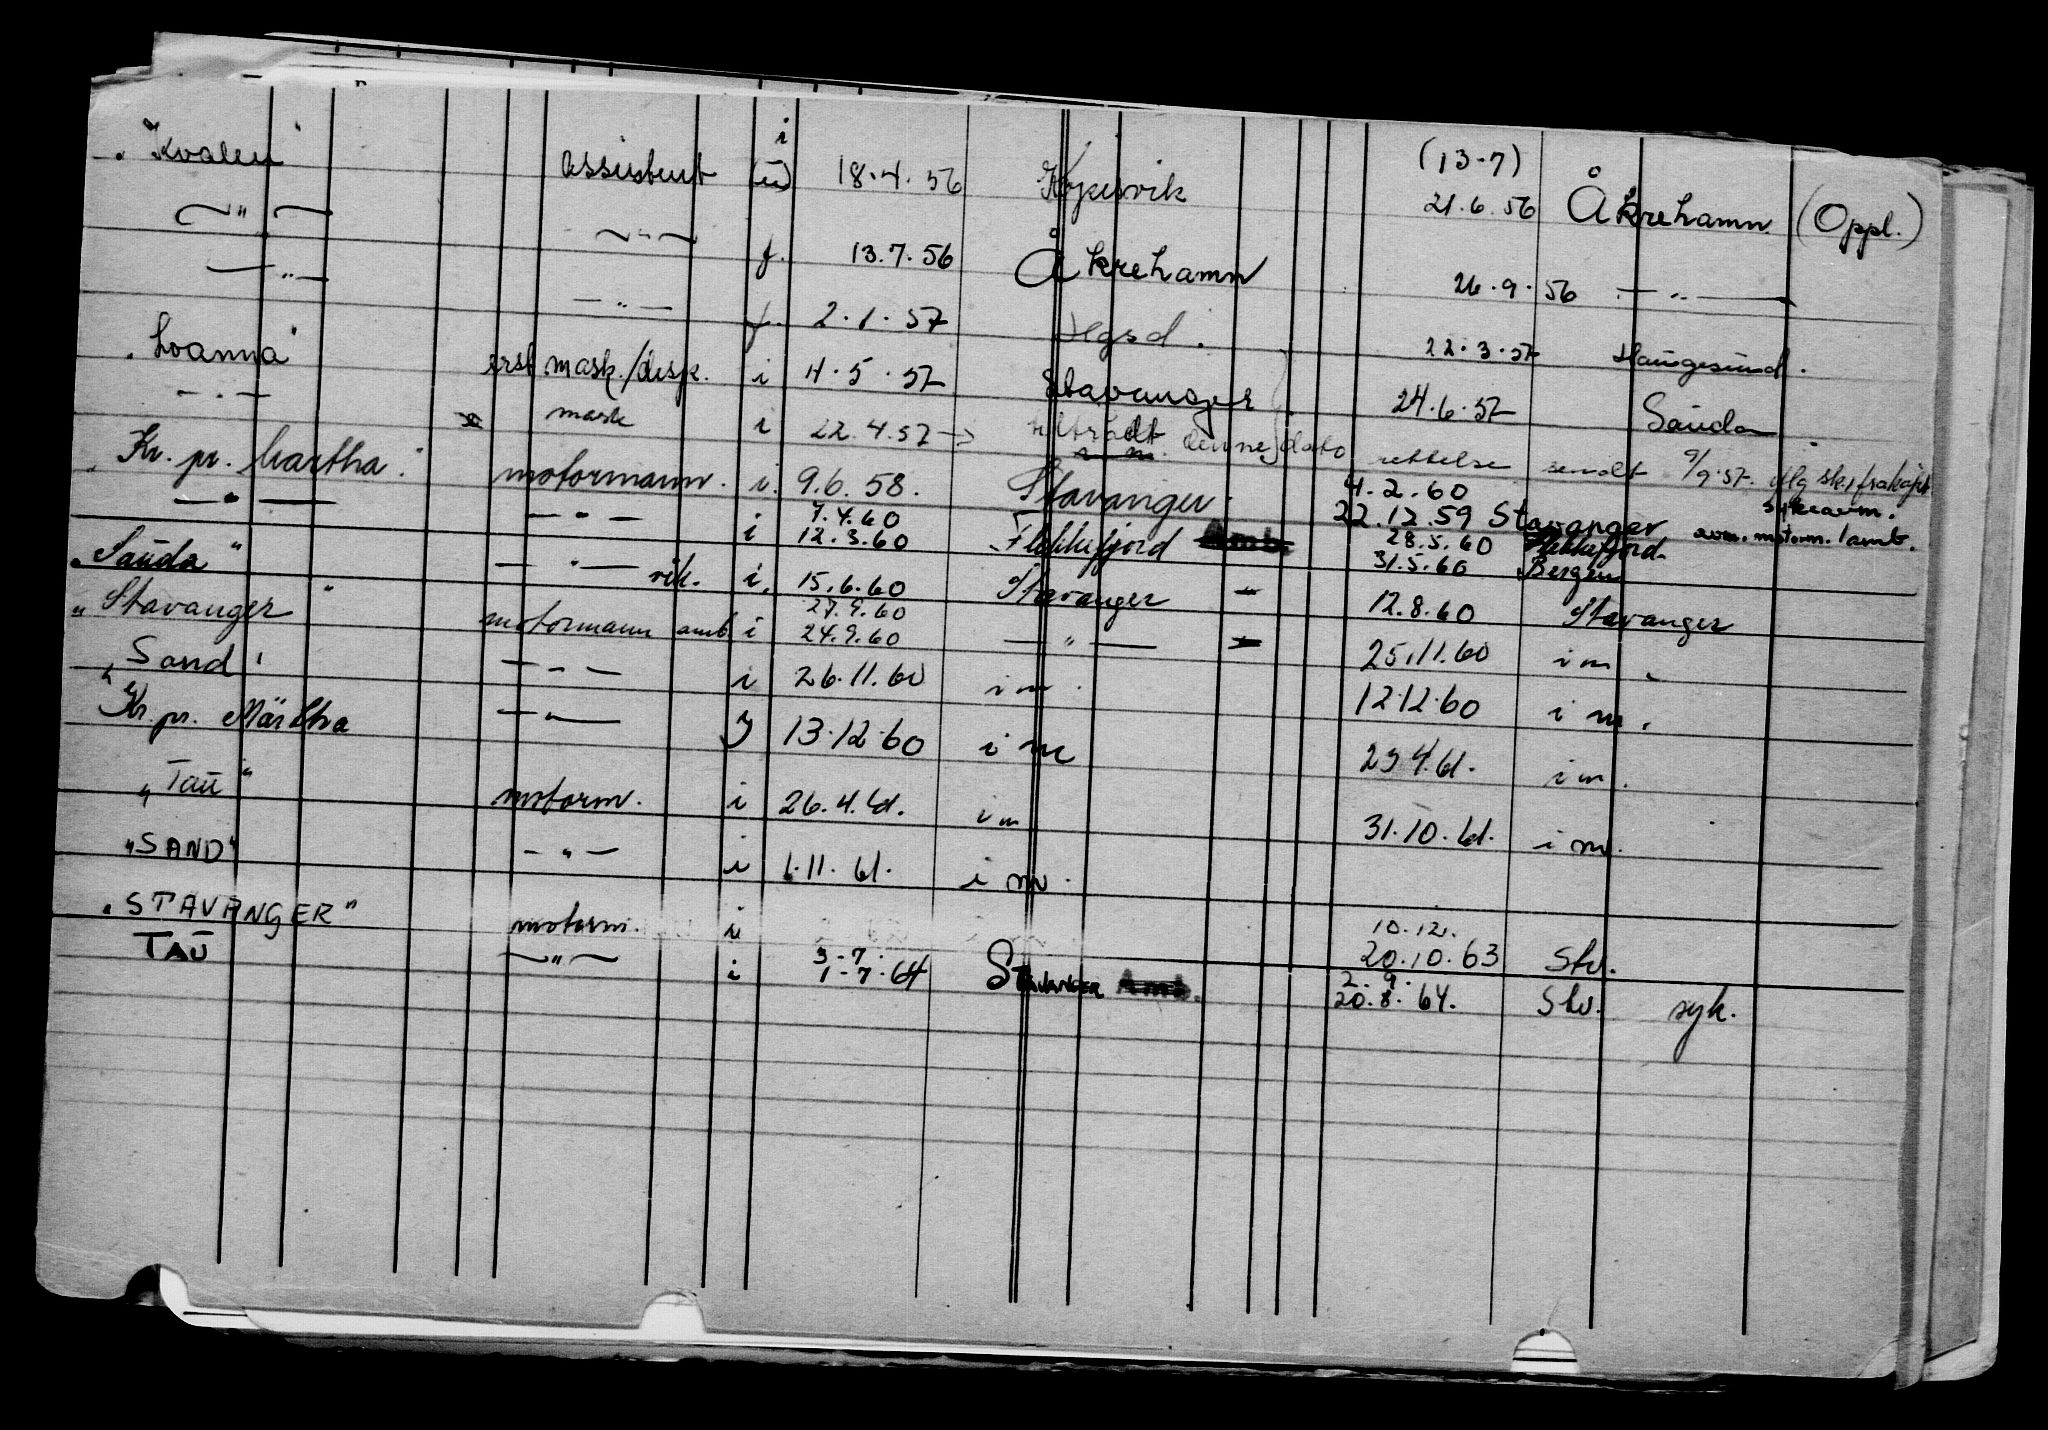 "Kvalen" assistent i (u) 18.4.56 Kopervik (13-7) 21.6.56 Åkrehamn (Oppl.)
— " — — " — f. 13.7.56 Åkrehamn 26.9.56 — " —
— " — — " — f. 2.1.57 Hgsd. 22.3.57 Haugesund.
"Loanna" mask./disp. i 4.5.57 Stavanger 24.6.57 Sauda
— " — mask i 22.4.57 → tiltrådt denne dato rettelse sendt 9/9-57.
"Kr. pr. Märtha." motormann. i. 9.6.58. Stavanger. 4.2.60 22.12.59 Stavanger
— " — — " — i 7.4.60 12.3.60 Flekkefjord Amb. 28.5.60 Flekkefjord. avm. motorm. / amb.
"Sauda" — " — vik. i. 15.6.60 Stavanger " 31.5.60 Bergen
"Stavanger" motormann amb i 27.9.60 24.9.60 — " — " 12.8.60 Stavanger
"Sand" — " — i 26.11.60 i m. 25.11.60 i m.
Kr. pr. Märtha — " — J 13.12.60 i m 12.12.60 i m.
"Tau" motorm. i 26.4.61. i m 25.4.61. i m.
"SAND" — " — i 1.11.61. i m. 31.10.61. i m.
"STAVANGER" motorm. i 10.12. 20.10.63 Stv.
TAU — " — i 3-7. 1-7-64 STAVANGER Amb. 2.9. 20.8.64. Stv. syk.